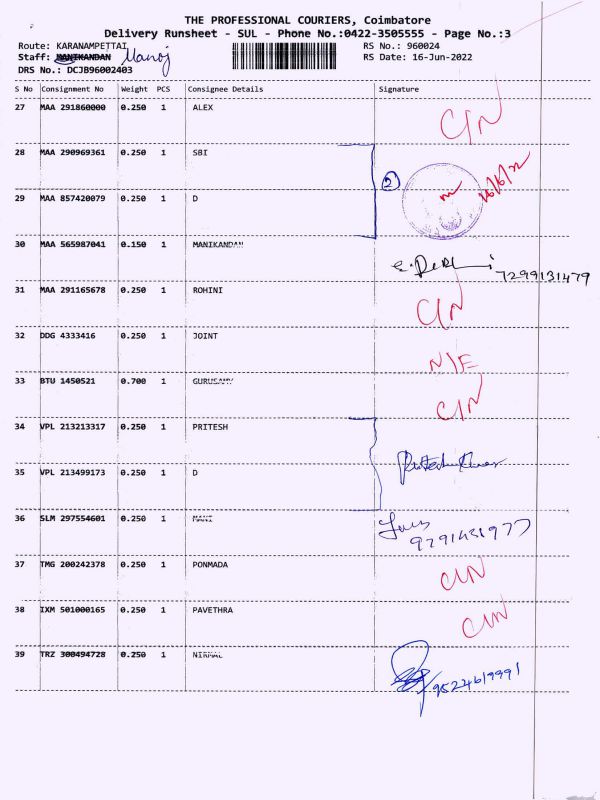 THE PROFESSIONAL COURIERS, Coimbatore
Delivery Runsheet - SUL - Phone No.:0422-3505555 - Page No.:3
Route: KARANAMPETTAI RS No.: 960024
Staff: MANIKANDAN Manoj RS Date: 16-Jun-2022
DRS No.: DCJB96002403
S No Consignment No Weight PCS Consignee Details Signature
27 MAA 291860000 0.250 1 ALEX C/N
28 MAA 290969361 0.250 1 SBI
2 16/6/22
29 MAA 857420079 0.250 1 D
30 MAA 565987041 0.150 1 MANIKANDAN
7299131479
31 MAA 291165678 0.250 1 ROHINI C/N
32 DDG 4333416 0.250 1 JOINT N/E
33 BTU 1450521 0.700 1 GURUSAMY C/N
34 VPL 213213317 0.250 1 PRITESH
35 VPL 213499173 0.250 1 D
36 SLM 297554601 0.250 1 MANI
9791431977
37 TMG 200242378 0.250 1 PONMADA C/N
38 IXM 501000165 0.250 1 PAVETHRA C/N
39 TRZ 300494728 0.250 1 NIRMAL
9524619991